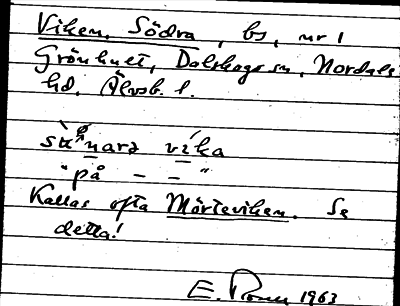 Viken, Södra, bs, nr 1
Grönhult, Dalskogs sn, Nordals
hd, Älvsb. l.
vika
"på — — "
Kallas ofta Mörteviken. Se
detta!
E. 1963